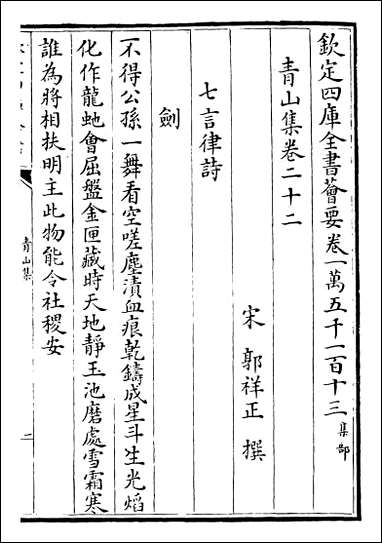 欽定四庫全書薈要卷一萬五千一百十三 集部
青山集卷二十二
宋 郭祥正 撰
七言律詩
劍
不得公孫一舞看空嗟塵漬血痕乾鑄成星斗生光焰
化作龍虵會屈盤金匣藏時天地靜玉池磨處雪霜寒
誰為將相扶明王此物能令社稷安
青山集
一